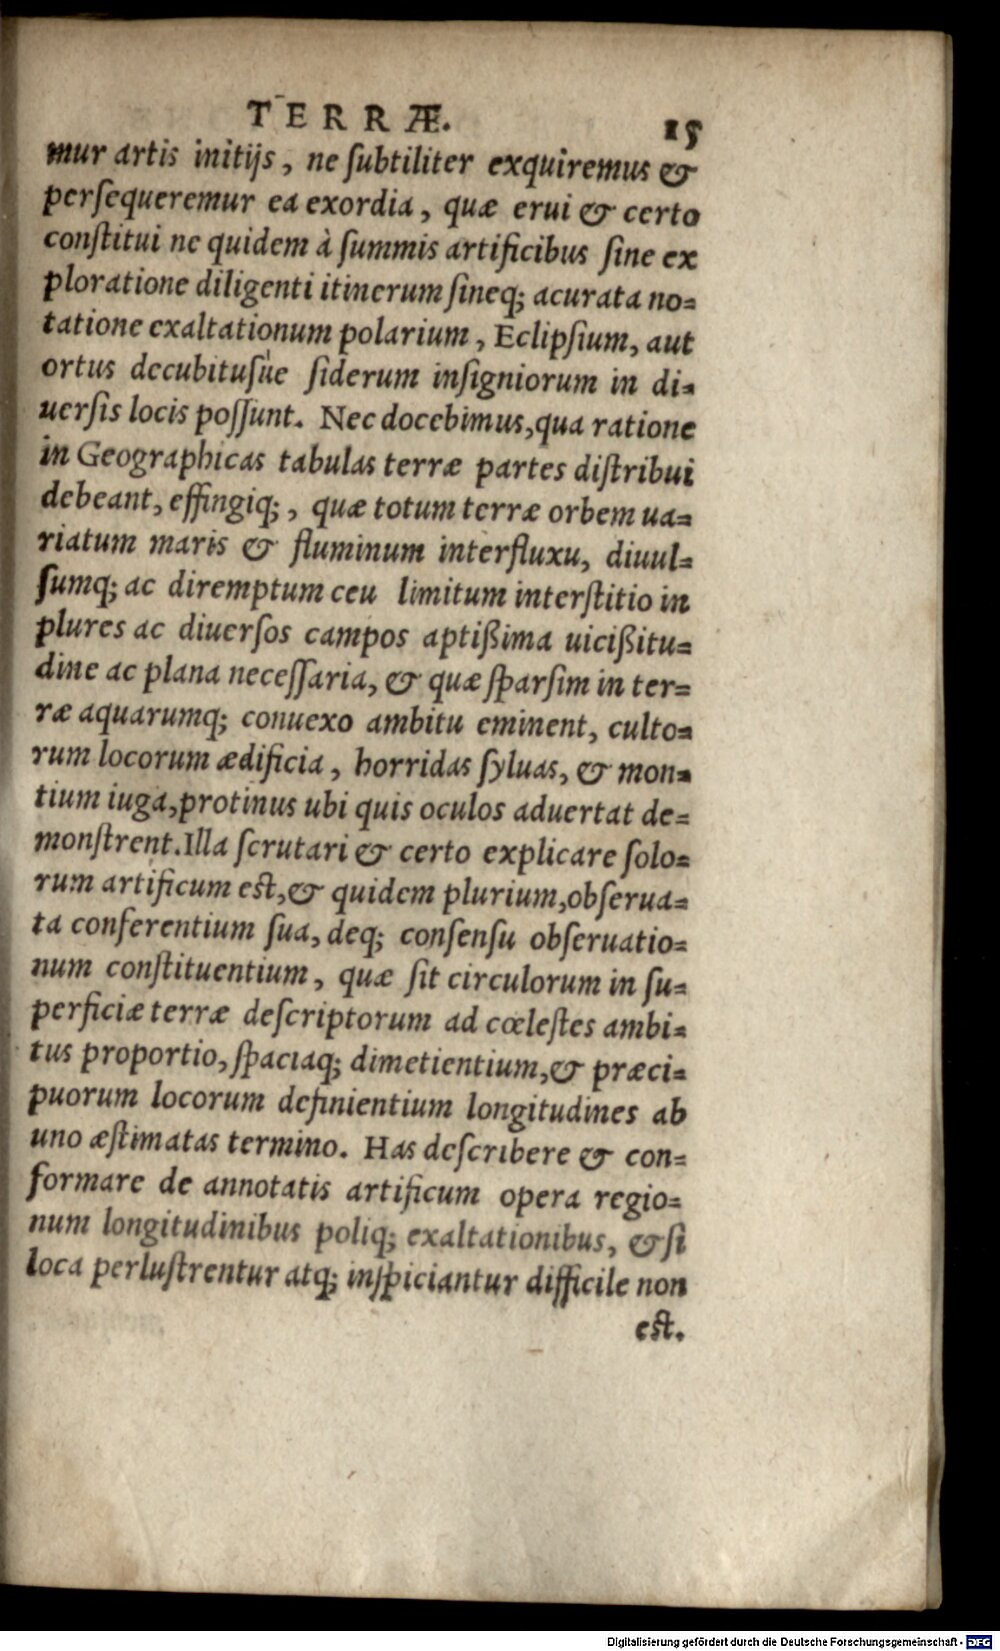 TERRÆ. 15
mur artis initijs, ne ſubtiliter exquiremus &
perſequeremur ea exordia, quæ erui & certo
conſtitui ne quidem à ſummis artificibus ſine ex
ploratione diligenti itinerum ſineq; acurata no=
tatione exaltationum polarium, Eclipſium, aut
ortus decubituſùe ſiderum inſigniorum in di=
uerſis locis poſſunt. Nec docebimus,qua ratione
in Geographicas tabulas terræ partes diſtribui
debeant, effingiq;, quæ totum terræ orbem ua=
riatum maris & fluminum interfluxu, diuul=
ſumq; ac diremptum ceu limitum interſtitio in
plures ac diuerſos campos aptißima uicißitu=
dine ac plana neceſſaria, & quæ ſparſim in ter=
ræ aquarumq; conuexo ambitu eminent, culto=
rum locorum ædificia, horridas ſyluas, & mon=
tium iuga,protinus ubi quis oculos aduertat de=
monſtrent.Illa ſcrutari & certo explicare ſolo=
rum artificum eſt,& quidem plurium,obſerua=
ta conferentium ſua, deq; conſenſu obſeruatio=
num conſtituentium, quæ ſit circulorum in ſu=
perficiæ terræ deſcriptorum ad cœleſtes ambi=
tus proportio, ſpaciaq; dimetientium,& præci=
puorum locorum definientium longitudines ab
uno æſtimatas termino. Has deſcribere & con=
formare de annotatis artificum opera regio=
num longitudinibus poliq; exaltationibus, & ſi
loca perluſtrentur atq; inſpiciantur difficile non
eſt.
Digitalisierung gefördert durch die Deutsche Forschungsgemeinschaft - DFG